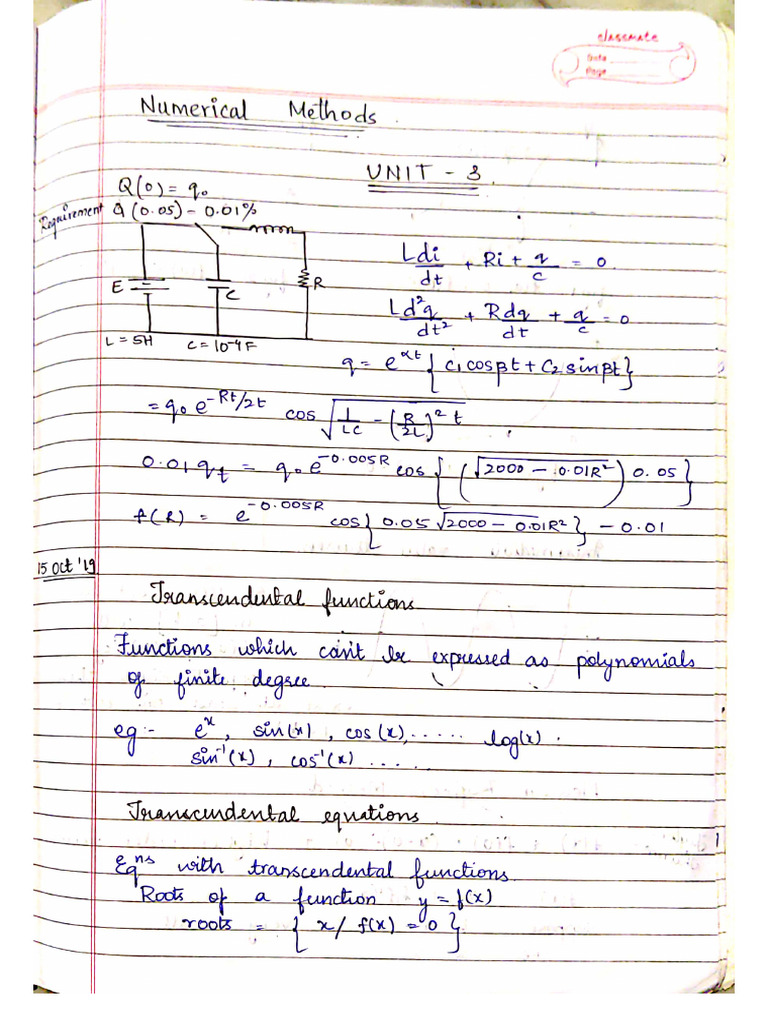 classmate
Date
Page
Numerical Methods.
UNIT - 3.
Q(0) = q₀
Requirement Q(0.05) - 0.01%
E C R
L = 5H C = 10⁻⁴F
Ldi/dt + Ri + q/c = 0.
Ld²q/dt² + Rdq/dt + q/c = 0
q = e^αt { c₁cosβt + C₂sinβt}
= q₀e^-Rt/2t cos √(1/LC - (R/2L)² t)
0.01q_t = q₀e^-0.005R cos{(√(2000 - 0.01R²)) 0.05}
f(R) = e^-0.005R cos{0.05 √(2000 - 0.01R²)} - 0.01
15 Oct '19
Transcendental functions
Functions which can't be expressed as polynomials
of finite degree.
eg:- eˣ, sin(x), cos(x),...... log(x).
sin⁻¹(x), cos⁻¹(x) ....
Transcendental equations
Eqⁿˢ with transcendental functions
Roots of a function y = f(x)
roots = { x/ f(x) = 0 }